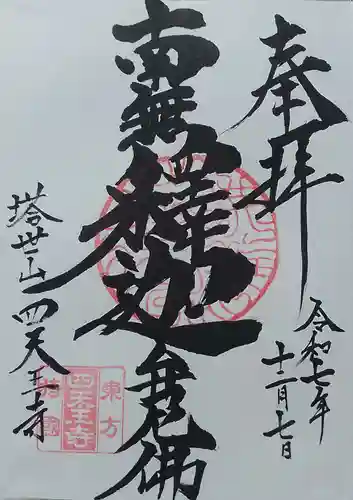 奉拝
令和七年
十二月七日
南無釋迦牟尼佛
塔世山四天王寺
東方
四天王寺